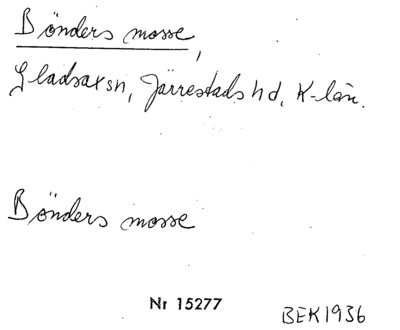 Bönders mosse,
Gladsax sn, Järrestads hd, K-län.
Bönders mosse
Nr 15277
BEK1936